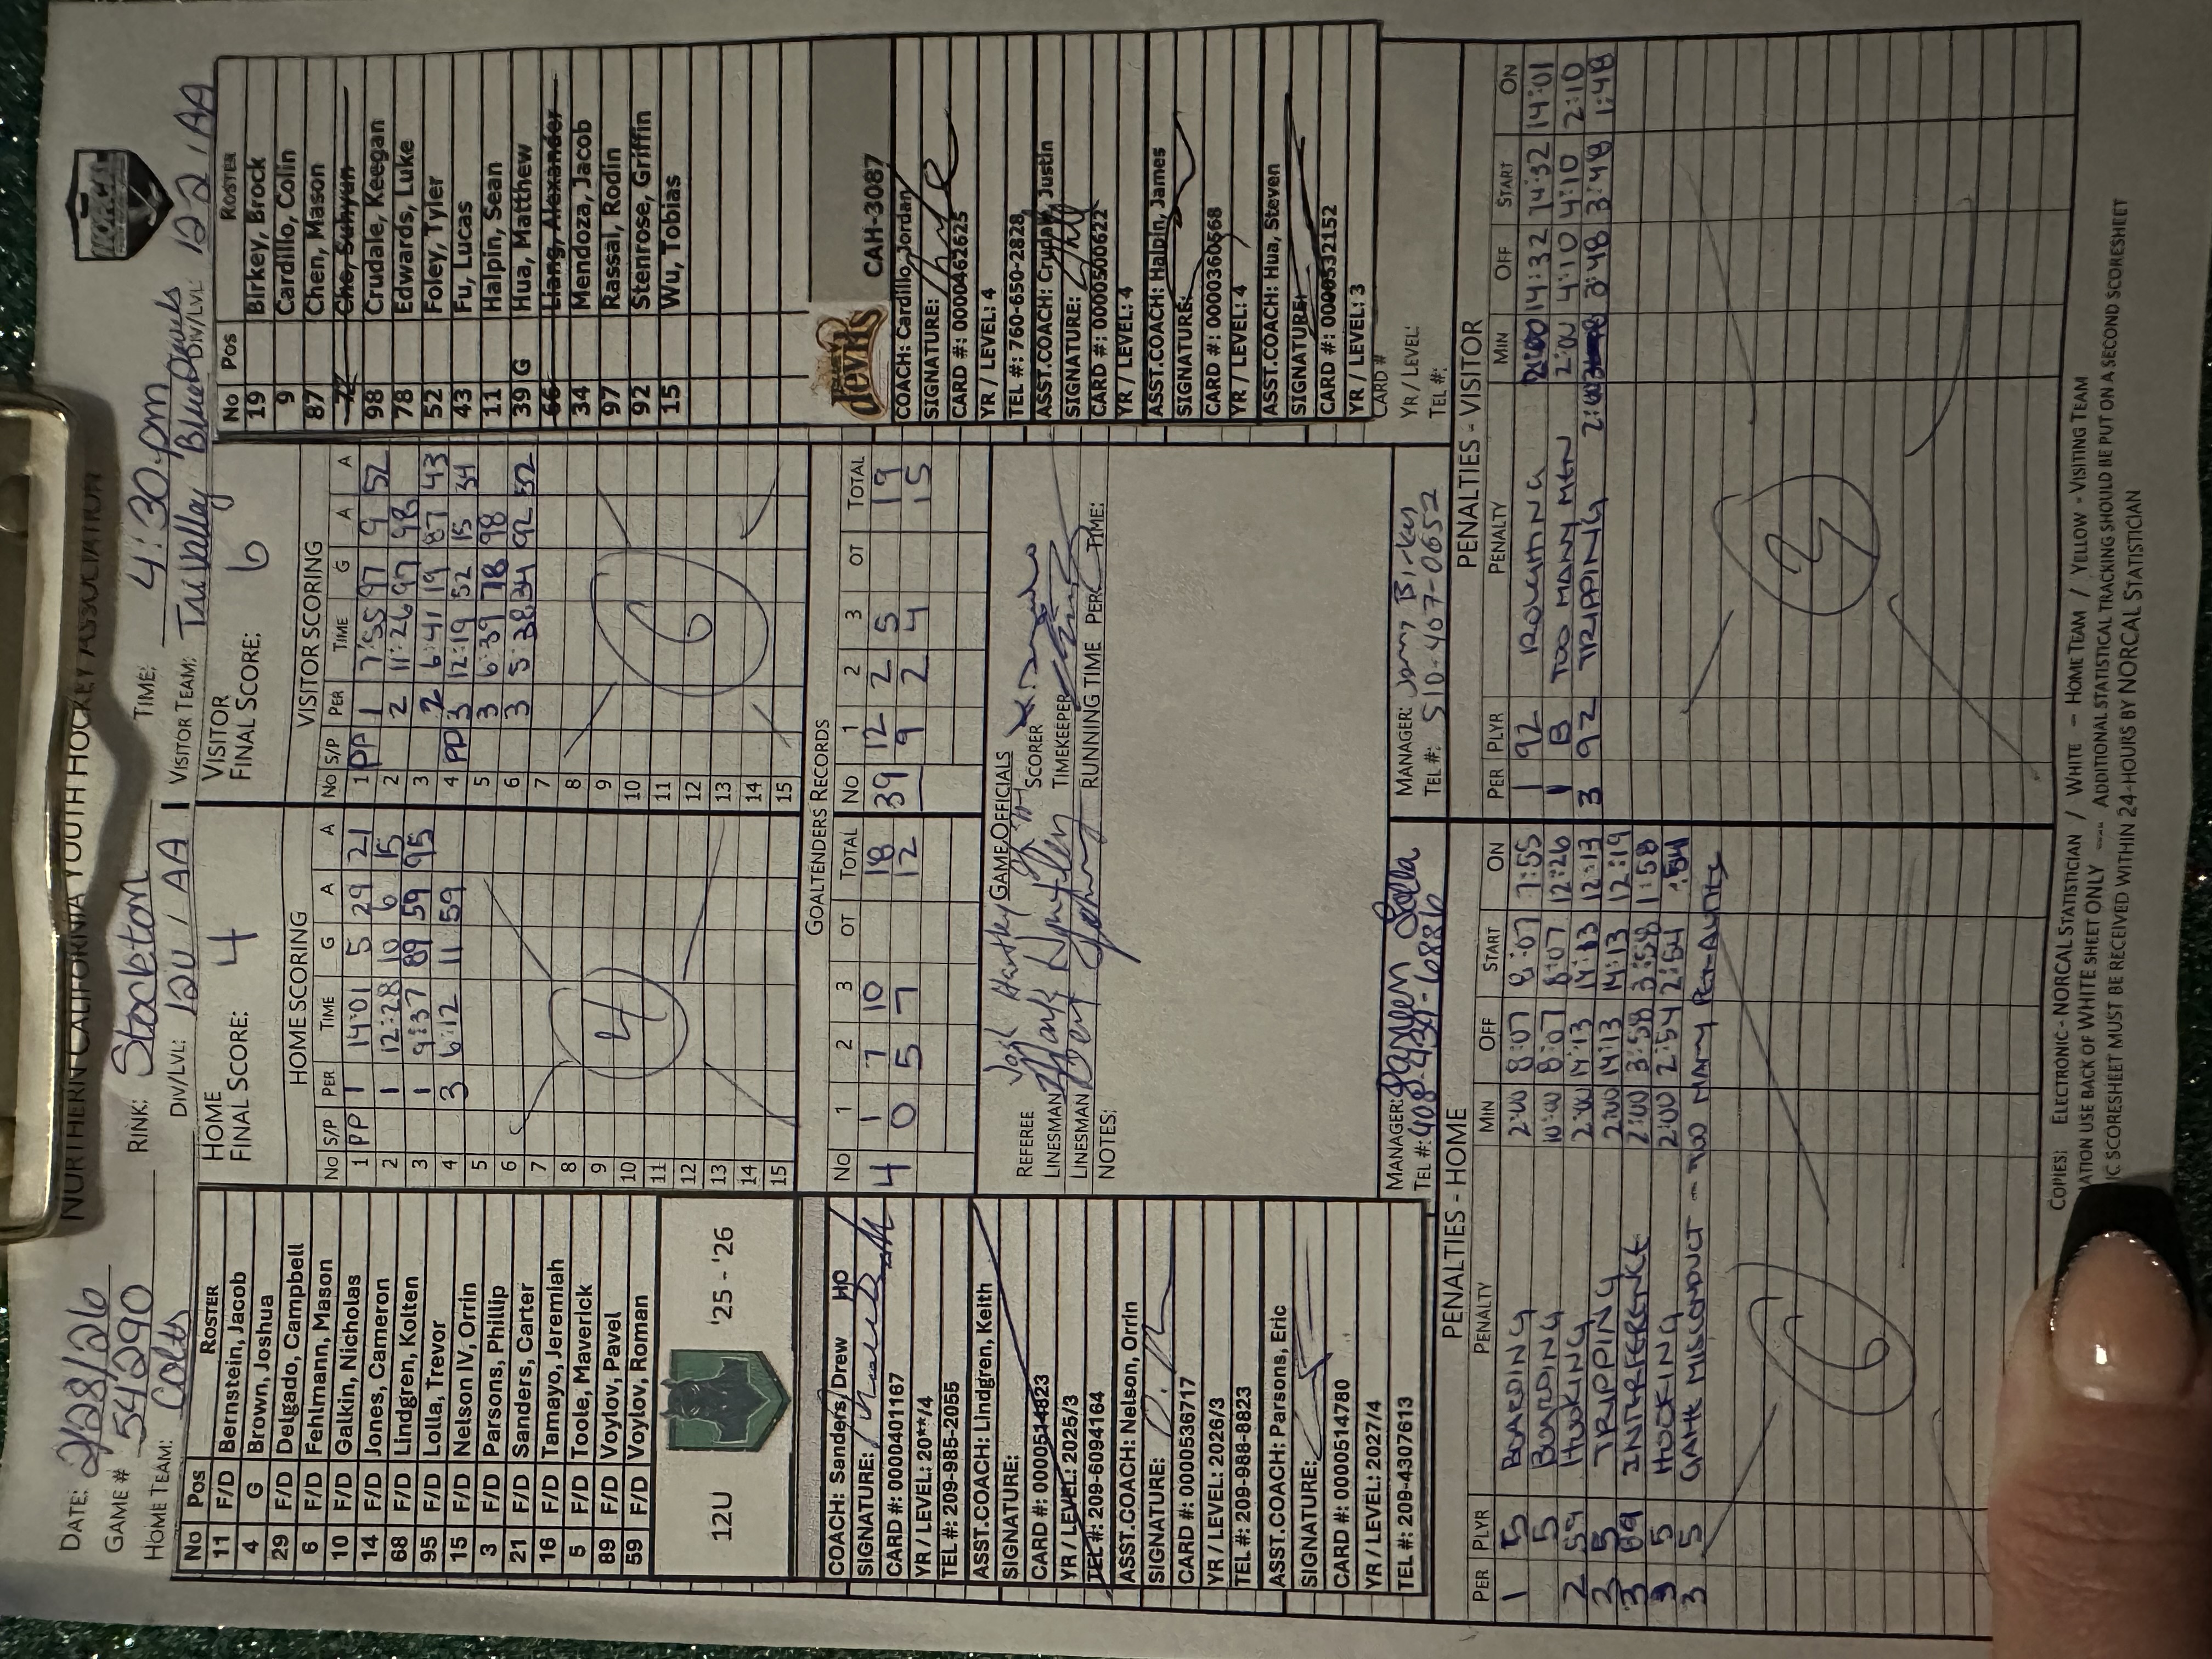 NORTHERN CALIFORNIA YOUTH HOCKEY ASSOCIATION
DATE: 2/28/26 RINK: Stockton TIME: 4:30pm
GAME # 54290 DIV/LVL: 12U / AA
HOME TEAM: Colts VISITOR TEAM: Tri Valley Blue Devils DIV/LVL: 12U / AA
No Pos ROSTER
11 F/D Bernstein, Jacob
4 G Brown, Joshua
29 F/D Delgado, Campbell
6 F/D Fehlmann, Mason
10 F/D Galkin, Nicholas
14 F/D Jones, Cameron
68 F/D Lindgren, Kolten
95 F/D Lolla, Trevor
15 F/D Nelson IV, Orrin
3 F/D Parsons, Phillip
21 F/D Sanders, Carter
16 F/D Tamayo, Jeremiah
5 F/D Toole, Maverick
89 F/D Voylov, Pavel
59 F/D Voylov, Roman
12U '25 - '26
COACH: Sanders, Drew HO
SIGNATURE:
CARD #: 0000401167
YR / LEVEL: 20**/4
TEL #: 209-985-2055
ASST.COACH: Lindgren, Keith
SIGNATURE:
CARD #: 0000514823
YR / LEVEL: 2025/3
TEL #: 209-6094164
ASST.COACH: Nelson, Orrin
SIGNATURE:
CARD #: 0000536717
YR / LEVEL: 2026/3
TEL #: 209-988-8823
ASST.COACH: Parsons, Eric
SIGNATURE:
CARD #: 0000514780
YR / LEVEL: 2027/4
TEL #: 209-4307613
HOME FINAL SCORE: 4
HOME SCORING
No S/P PER TIME G A A
1 PP 1 14:01 5 29 21
2 1 12:28 10 6 15
3 1 9:37 89 59 95
4 3 6:12 11 59
5
6
7
8
9
10
11
12
13
14
15
4
VISITOR FINAL SCORE: 6
VISITOR SCORING
No S/P PER TIME G A A
1 PP 1 7:55 97 9 52
2 2 11:26 97 98
3 2 6:41 19 87 43
4 PP 3 12:19 52 15 34
5 3 6:39 78 98
6 3 5:38 34 92 52
7
8
9
10
11
12
13
14
15
6
GOALTENDERS RECORDS
No 1 2 3 OT TOTAL No 1 2 3 OT TOTAL
4 1 7 10 18 39 12 2 5 19
0 5 7 12 9 2 4 15
GAME OFFICIALS
REFEREE Josh Hartley SCORER
LINESMAN TIMEKEEPER
LINESMAN RUNNING TIME PER TIME:
NOTES:
MANAGER: Lolla
TEL #: 408-439-6886
MANAGER: Birkey
TEL #: 510-407-0652
No Pos ROSTER
19 Birkey, Brock
9 Cardillo, Colin
87 Chen, Mason
Cho, Suhyun
98 Crudale, Keegan
78 Edwards, Luke
52 Foley, Tyler
43 Fu, Lucas
11 Halpin, Sean
39 G Hua, Matthew
66 Liang, Alexander
34 Mendoza, Jacob
97 Rassal, Rodin
92 Stenrose, Griffin
15 Wu, Tobias
devils CAH-3087
COACH: Cardillo, Jordan
SIGNATURE:
CARD #: 0000462625
YR / LEVEL: 4
TEL #: 760-650-2828
ASST.COACH: Crudale, Justin
SIGNATURE:
CARD #: 0000500622
YR / LEVEL: 4
ASST.COACH: Halpin, James
SIGNATURE:
CARD #: 0000360568
YR / LEVEL: 4
ASST.COACH: Hua, Steven
SIGNATURE:
CARD #: 0000532152
YR / LEVEL: 3
CARD #
YR / LEVEL:
TEL #:
PENALTIES - HOME
PER PLYR PENALTY MIN OFF START ON
1 5 BOARDING 2:00 8:07 8:07 7:55
5 BOARDING 10:00 8:07 8:07 12:26
2 59 HOOKING 2:00 14:13 14:13 12:13
3 5 TRIPPING 2:00 14:13 14:13 12:19
3 89 INTERFERENCE 2:00 3:58 3:58 1:58
3 5 HOOKING 2:00 2:54 2:54 :54
3 5 GAME MISCONDUCT - TOO MANY PENALTIES
6
PENALTIES - VISITOR
PER PLYR PENALTY MIN OFF START ON
1 92 ROUGHING 2:00 14:32 14:32 14:01
1 B TOO MANY MEN 2:00 4:10 4:10 2:10
3 92 TRIPPING 2:00 3:48 3:48 1:48
COPIES: ELECTRONIC - NORCAL STATISTICIAN / WHITE - HOME TEAM / YELLOW - VISITING TEAM
ATION USE BACK OF WHITE SHEET ONLY ---- ADDITIONAL STATISTICAL TRACKING SHOULD BE PUT ON A SECOND SCORESHEET
IC SCORESHEET MUST BE RECEIVED WITHIN 24-HOURS BY NORCAL STATISTICIAN